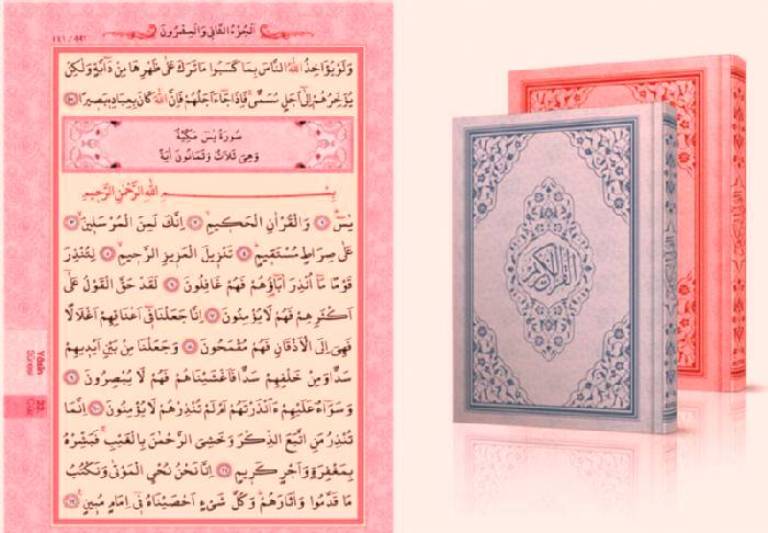 اَلْجُزْءُ الثَّانِي وَالْعِشْرُونَ
٤٤١ / 441
وَلَوْ يُؤَاخِذُ اللّٰهُ النَّاسَ بِمَا كَسَبُوا مَا تَرَكَ عَلٰى ظَهْرِهَا مِنْ دَٓابَّةٍ وَلٰكِنْ
يُؤَخِّرُهُمْ اِلٰٓى اَجَلٍ مُسَمًّىۚ فَاِذَا جَٓاءَ اَجَلُهُمْ فَاِنَّ اللّٰهَ كَانَ بِعِبَادِهٖ بَصٖيرًا ﴿٤٥﴾
سُورَةُ يٰسٓ مَكِّيَّةٌ
وَهِيَ ثَلَاثٌ وَثَمَانُونَ اٰيَةً
بِسْمِ اللّٰهِ الرَّحْمٰنِ الرَّحٖيمِ
يٰسٓ ﴿١﴾ وَالْقُرْاٰنِ الْحَكٖيمِ ﴿٢﴾ اِنَّكَ لَمِنَ الْمُرْسَلٖينَ ﴿٣﴾
عَلٰى صِرَاطٍ مُسْتَقٖيمٍ ﴿٤﴾ تَنْزٖيلَ الْعَزٖيزِ الرَّحٖيمِ ﴿٥﴾ لِتُنْذِرَ
قَوْمًا مَٓا اُنْذِرَ اٰبَٓاؤُ۬هُمْ فَهُمْ غَافِلُونَ ﴿٦﴾ لَقَدْ حَقَّ الْقَوْلُ عَلٰٓى
اَكْثَرِهِمْ فَهُمْ لَا يُؤْمِنُونَ ﴿٧﴾ اِنَّا جَعَلْنَا فٖٓي اَعْنَاقِهِمْ اَغْلَالًا
فَهِيَ اِلَى الْاَذْقَانِ فَهُمْ مُقْمَحُونَ ﴿٨﴾ وَجَعَلْنَا مِنْ بَيْنِ اَيْدٖيهِمْ
سَدًّا وَمِنْ خَلْفِهِمْ سَدًّا فَاَغْشَيْنَاهُمْ فَهُمْ لَا يُبْصِرُونَ ﴿٩﴾
وَسَوَٓاءٌ عَلَيْهِمْ ءَاَنْذَرْتَهُمْ اَمْ لَمْ تُنْذِرْهُمْ لَا يُؤْمِنُونَ ﴿١٠﴾ اِنَّمَا
تُنْذِرُ مَنِ اتَّبَعَ الذِّكْرَ وَخَشِيَ الرَّحْمٰنَ بِالْغَيْبِۚ فَبَشِّرْهُ
بِمَغْفِرَةٍ وَاَجْرٍ كَرٖيمٍ ﴿١١﴾ اِنَّا نَحْنُ نُحْيِ الْمَوْتٰى وَنَكْتُبُ
مَا قَدَّمُوا وَاٰثَارَهُمْ وَكُلَّ شَيْءٍ اَحْصَيْنَاهُ فٖٓي اِمَامٍ مُبٖينٍ ﴿١٢﴾
Yâsîn
Sûresi
22.
Cüz
القرآن الكريم